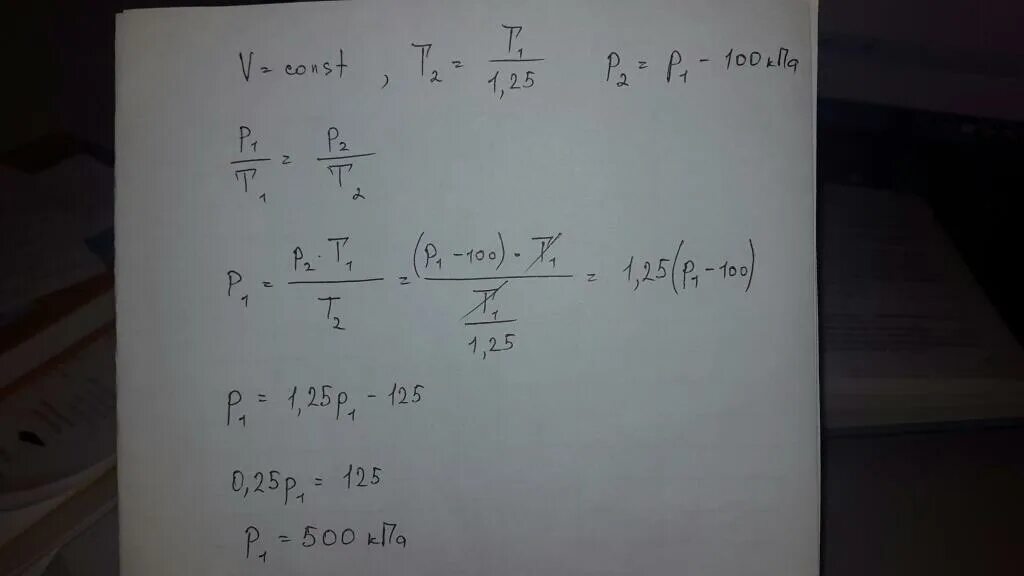 V = const , T₂ = T₁/1,25 P₂ = P₁ - 100 кПа
P₁/T₁ = P₂/T₂
P₁ = P₂·T₁/T₂ = (P₁ - 100)·T₁/(T₁/1,25) = 1,25(P₁ - 100)
P₁ = 1,25P₁ - 125
0,25P₁ = 125
P₁ = 500 кПа